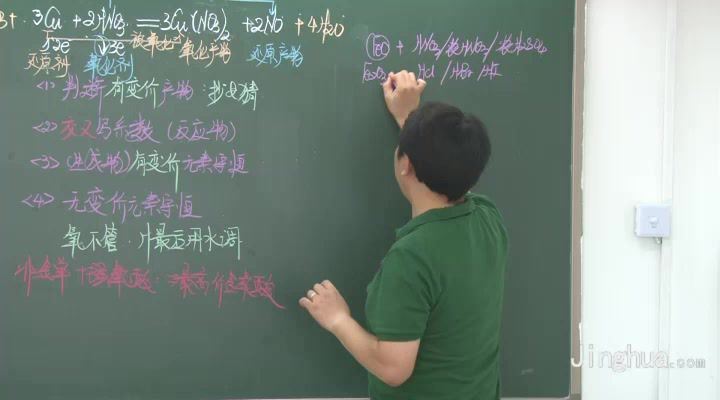 3Cu + 2HNO₃ == 3Cu(NO₃)₂ + 2NO + 4H₂O
还原剂 氧化剂 氧化产物 还原产物
<1> 判断有变价产物:
<2> 交叉写系数 (反应物)
<3> (生成物) 有变价元素守恒
<4> 无变价元素守恒
氧不管,H最后用水调
FeO + HNO₃/浓HNO₃/浓H₂SO₄
HCl / HBr / HI
Jinghua.com